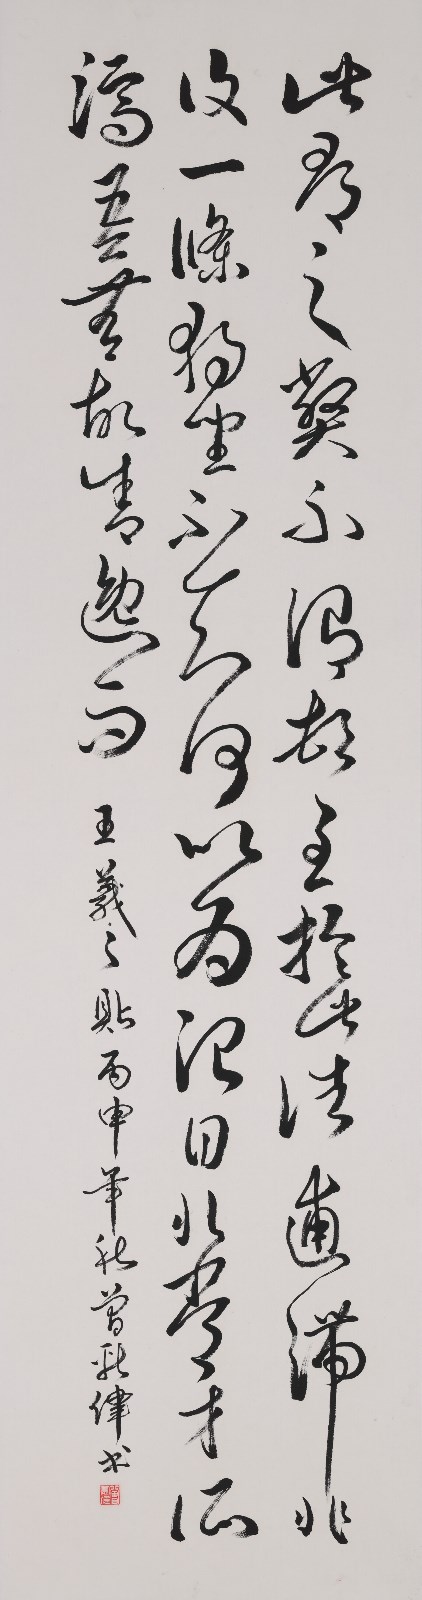 此郡之弊不謂頓至於此諸逋滯非
復一條獨坐不知何以為治自非常才所
濟吾無故舍逸而
王羲之貼丙申年秋曾偉书